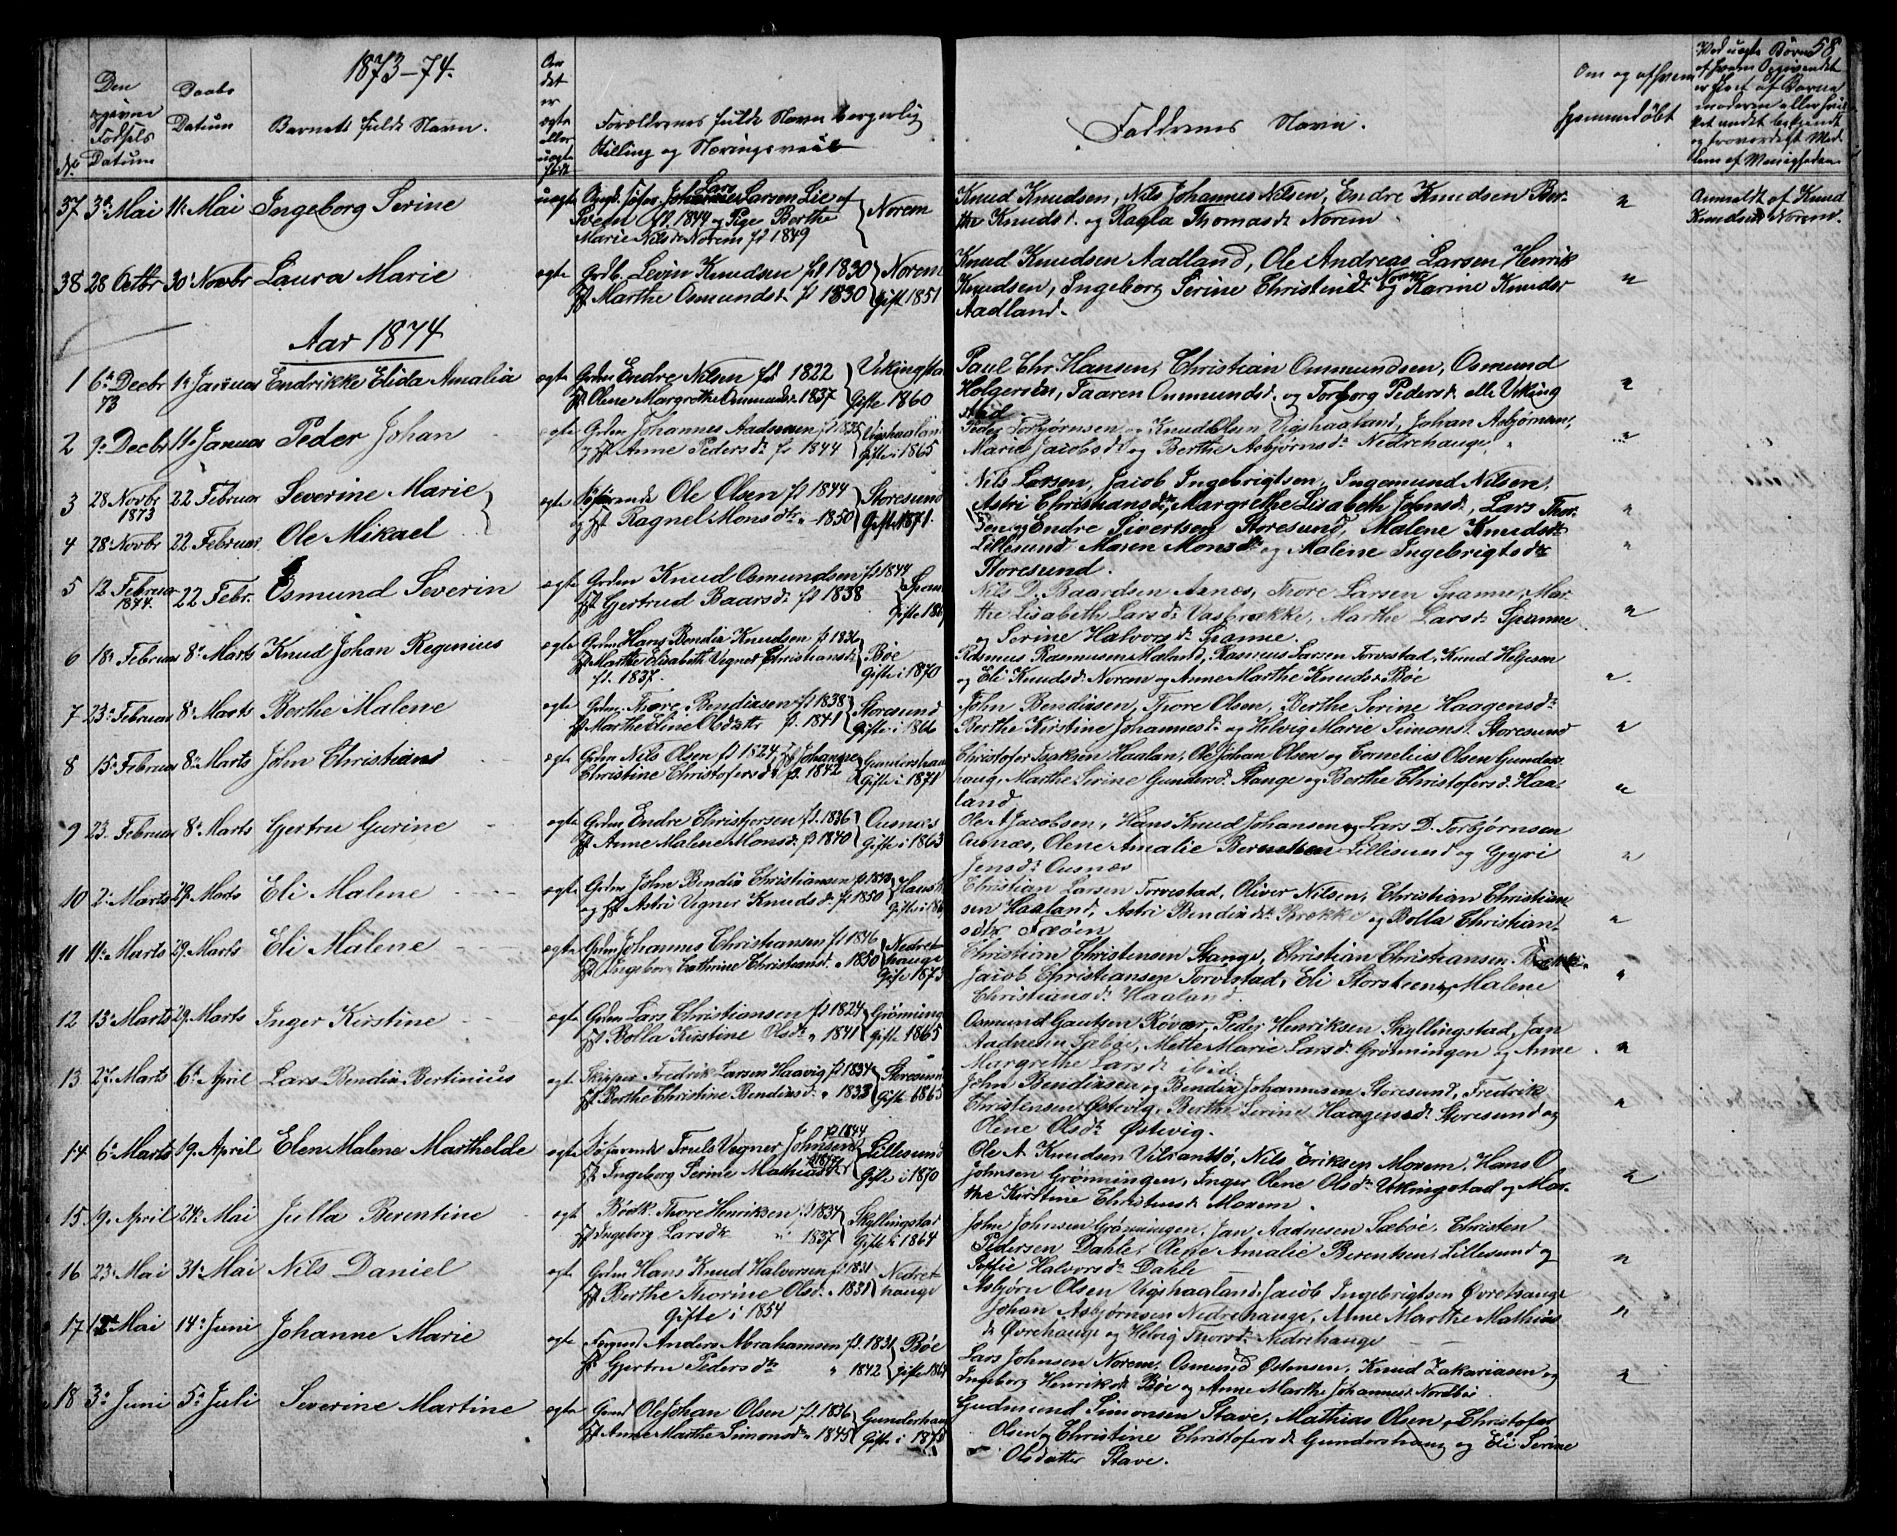 1873-74.
58
No
Den
Fødsels
Datum
Daabs
Datum
Barnets fulde Navn.
Om
det
er
ægte
eller
uægte
Forældrenes fulde Navn borgerlig
Stilling og Næringsvei
Faddrenes Navn.
Om og af hvem
hjemmedøbt
Ved uægte Børn
37 3de Mai 11te Mai Ingeborg Serine uægte Lars Larsen Lie af
og Pige Berthe
Marie Nilsdr Norem fd 1849
Norem
Knud Knudsen, Nils Johannes Nilsen, Endre Knudsen Ber-
the Knudsd. og Ragla Thomasdr Norem
Anmeldt af Knud
Knudsen Norem.
38 28 Octbr 30te Novbr Laura Marie ægte Grdb. Levin Knudsen fd 1830 Norem
Marthe Osmundsdr fd 1830 Gift 1851
Knud Knudsen Aadland, Ole Andreas Larsen Henrik
Knudsen, Ingeborg Serine Christinedr Norem og Karine Knudsdr
Aadland.
Aar 1874
1 6te Decbr 73 1te Januar Endrikke Elida Amalia ægte Grdm Endre Nilsen fd 1822 Vikingsta
Olene Margrethe Ommundsdr 1837 Gifte 1860
Paul Chr. Hansen, Christian Ommundsen, Osmund
Holgersen, Taaren Ommundsd. og Torborg Pedersdr alle Viking
stad.
2 9de Decbr 11te Januar Peder Johan ægte Grdm Johannes Aadnesen
Anne Pedersdr fd 1844 Gifte i 1865
Peder Torbjørnsen og Knud Olsen Vigshagland, Johan Asbjørnsen,
Marie Jacobsdr og Berthe Asbjørnsdr Nedrehauge
3 28 Novbr 1873 22 Februar Severine Marie ægte Søfarende Ole Olsen fd 1844 Storesund
Ragnel Monsdtr 1850 Gifte 1871.
4 28 Novbr 22 Februar Ole Mikael
Nils Larsen, Jacob Ingebrigtsen, Ingemund Nilsen,
Astri Christiansdr, Margrethe Lisabeth Johnsdr, Lars Thor-
sen og Endre Sivertsen Storesund, Malene Knudsdtr
Lillesund Maren Monsdr og Malene Ingebrigtsdtr
Storesund.
5 12 Februar 1874. 22 Febr. Osmund Severin ægte Grdm Knud Osmundsen fd 1844
Gjertrud Baarsdr fd 1838
Nils D. Baardsen Asnæs, Thore Larsen Spanne, Mar-
the Lisabeth Larsdr Vasbrække, Marthe Larsdr Spanne
og Serine Halvorsdr Spanne.
6 18de Februar 8de Marts Knud Johan Reginius ægte Grdm Hans Bendix Knudsen fd 1836
Marthe Elisabeth Vegner Christiansdr
fd. 1837.
Bøe
Gifte i 1870
Rasmus Rasmusen Maland, Rasmus Larsen Torvestad, Knud Helgesen
og Eli Knudsdr Norem og Anne Marthe Knudsdr Bøe
7 23de Februar 8de Marts Berthe Malene ægte Grdm. Thore Bendixsen fd 1838 Storesund
Marthe Eline Olsdatter fd. 1841 Gifte i 1866
John Bendixsen, Thore Olsen, Berthe Serine Haagensdr
Berthe Kirstine Johannesdr og Helvig Marie Simonsd. Storesund
8 15de Februar 8de Marts John Christian ægte Grdm Nils Olsen fd 1824, Johanne
Christine Christofersdr fd. 1842 Gifte i 1871
Christofer Isaksen Haalan, Ole Johan Olsen og Cornelius Olsen Gunders-
haug, Marthe Serine Gundersd. Stange og Berthe Christofersd. Haa-
land
9 23. Februar 8de Marts Gjertru Gurine ægte Grdm Endre Christophersen fd. 1836 Ousnæs
Anne Malene Monsdr fd 1840 Gifte i 1863
Ole A Jacobsen, Hans Knud Johansen og Lars D. Torbjørnsen
Ousnæs, Olene Amalie Berentsen Lillesund og Gyri
Jensdr Ousnæs
10 2de Marts 29 Marts Eli Malene ægte Grdm John Bendix Christiansen
og Astri Vegner Knudsdr fd 1850
Christian Larsen Torvestad, Oliver Nilsen, Christian Christian-
sen Haaland, Astri Bendixdr Brekke og Bolla Christian-
11 11te Marts 29 Marts Eli Malene ægte Grdm Johannes Christiansen fd 1846 Nedre-
Ingeborg Cathrine Christiansd. 1850 hauge
Gifte 1873
Christian Christensen Stange, Christian Christiansen
Jacob Christiansen Torvestad, Eli Storsteen og Malene
Christiansdr Haaland.
12 13 Marts 29 Marts Inger Kirstine ægte Grdm Lars Christiansen fd 1824 Grønning
Bolla Kirstine Olsdr 1841 Gifte 1865
Osmund Gautsen Røvær, Peder Henriksen Skyllingstad, Jan
Aadnesen Sæbøe, Mette Marie Larsdr Grønningen og Anne
Margrethe Larsdr ibid.
13 27. Marts 6te April Lars Bendix Bertinius ægte Skipper Fredrik Larsen Haavig fd 1834 Storesund
Berthe Christine Bendixsdr 1833 Gifte 1865
John Bendixsen og Bendix Johannesen Storesund, Fredrik
Christensen Østevig, Berthe Serine Haagensdr Storesund og
Olene Olsdr Østevig.
14 6te Marts 19. April Elen Malene Marthelde ægte Søfarende Truls Vegner Johnsen fd 1844 Lillesund
Ingeborg Serine Mathiasdr Gifte i 1870
Ole A Knudsen Vilvantsø, Nils Eriksen Moxem, Hans O
Johnsen Grønningen, Inger Olene Olsdr Vikingstad og Mar-
the Kirstine Christensdr Moxem.
15 9de April 24de Mai Julla Berentine ægte Bødk. Thore Henriksen fd 1837 Skyllingstad
Ingeborg Larsdtr 1837 Gifte i 1864
John Johnsen Grønningen, Jan Aadnesen Sæbøe, Christen
Pedersen Dahle, Olene Amalie Berentsen Lillesund og
Sofie Halvorsdr Dahle
16 23de Mai 31te Mai Nils Daniel ægte Grdm Hans Knud Halvorsen fd 1831 Nedre-
Berthe Thorine Olsdr 1831 hauge
Gifte i 1854
Asbjørn Olsen Vigshagland, Jacob Ingebrigtsen Øvrehauge
Johan Asbjørnsen Nedrehauge, Anne Marthe Mathias-
dr Øvrehauge og Helvig Thorsdr Nedrehauge
17 12te Mai 14de Juni Johanne Marie ægte Anders Abrahamsen fd. 1831 Bøe
Gjertru Pedersdtr 1842
Lars Johnsen Norem, Osmund Østensen, Knud Zakariasen og
Ingeborg Henriksdr Bøe og Anne Marthe Johannesdr Nordbø
18 3de Juni 5te Juli Severine Martine ægte Grdm Ole Johan Olsen fd. 1836 Gundershau
Anne Marthe Simonsdr 1845
Gudmund Simonsen Stave, Mathias Olsen, Christofer
Olsen og Christine Christofersdr Gundershaug og Eli Serine
Olsdatter Stave.